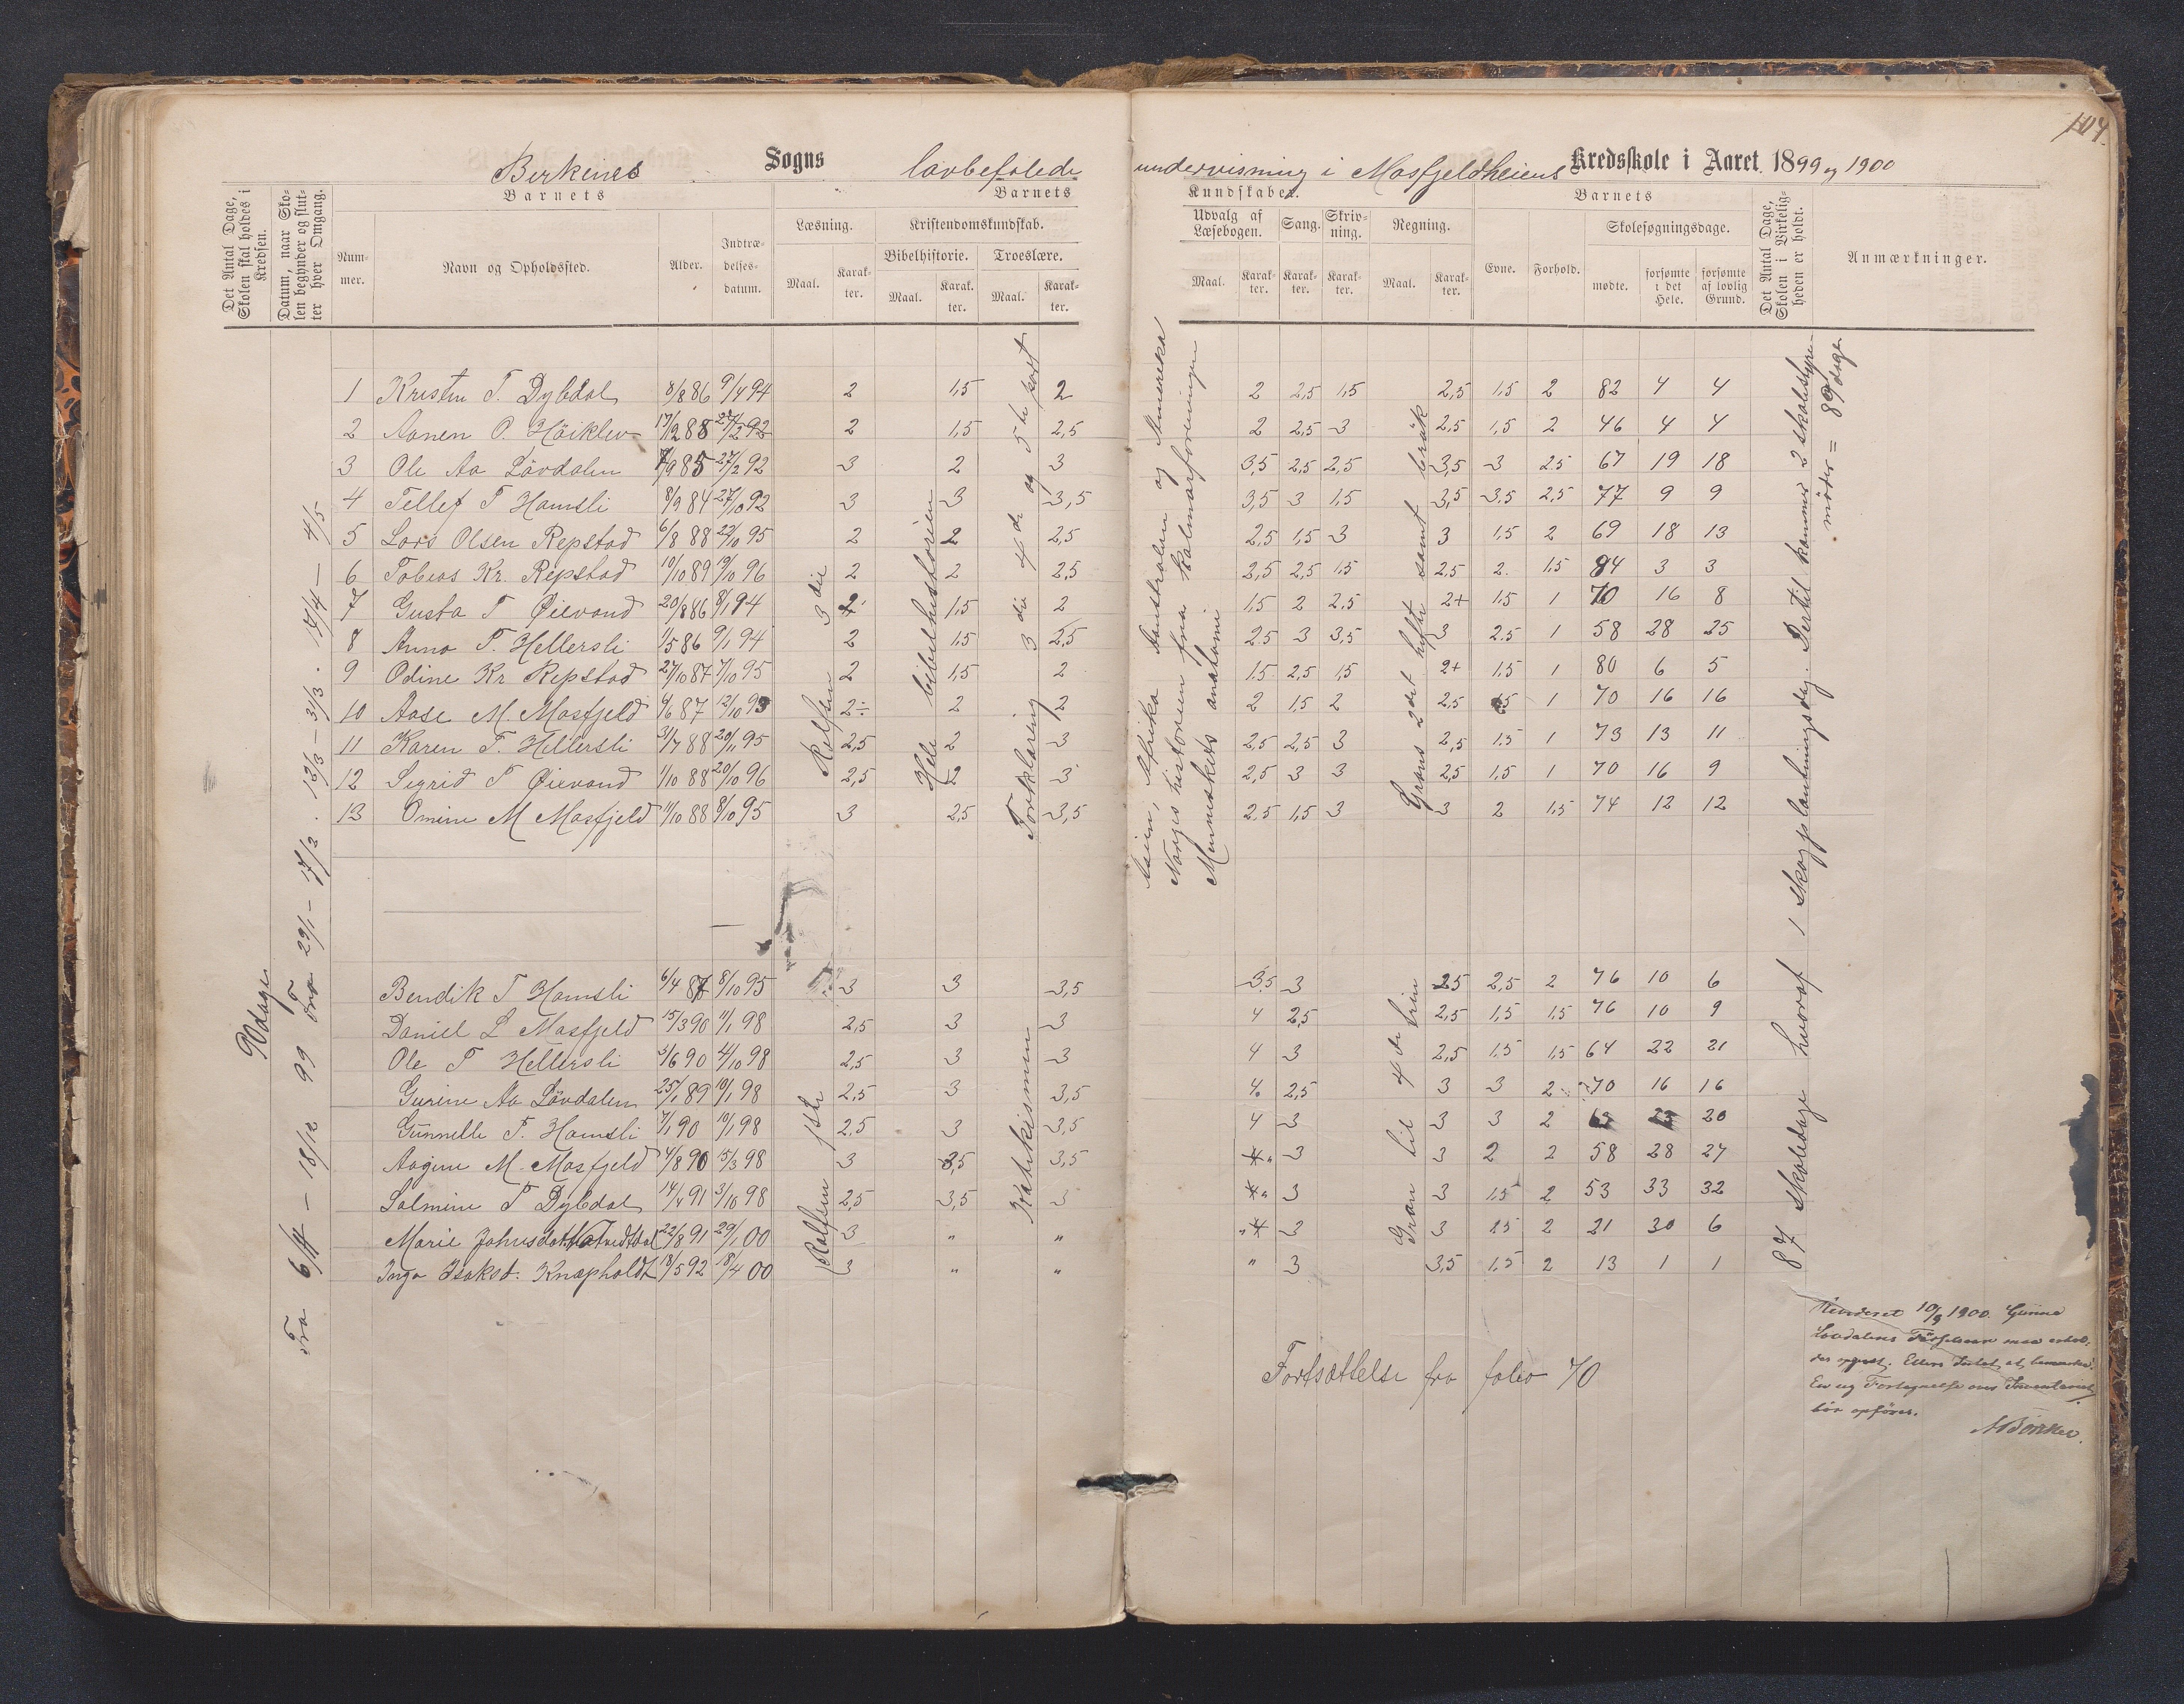 104.
Birkenes Sogns lovbefalede undervisning i Mosfjeldheiens Kredsskole i Aaret 1899 og 1900
Det Antal Dage, Skolen skal holdes i Kredsen.
Datum, naar Skolen begynder og slutter hver Omgang.
Barnets
Nummer.
Navn og Opholdssted.
Alder.
Indtrædelsesdatum.
Barnets
Læsning.
Maal.
Karakter.
Kristendomskundskab.
Bibelhistorie.
Maal.
Karakter.
Troeslære.
Maal.
Karakter.
Kundskaber.
Udvalg af Læsebogen.
Maal.
Karakter.
Sang.
Karakter.
Skrivning.
Karakter.
Regning.
Maal.
Karakter.
Barnets
Evne.
Forhold.
Skolesøgningsdage.
mødte.
forsømte i det Hele.
forsømte af lovlig Grund.
Det Antal Dage, Skolen i Virkeligheden er holdt.
Anmærkninger.
90 dage
Fra 6/11 – 18/12 99 Fra 29/1 – 17/2 . 12/3 – 31/3 . 17/4 – 4/5
1 Kristen T. Dybdal 8/8 86 9/4 94 2 1,5 2 2 2,5 1,5 2,5 1,5 2 82 4 4
2 Aanen O. Höiklev 17/12 88 27/2 92 2 1,5 2,5 2 2,5 3 2,5 1,5 2 46 4 4
3 Ole Aa Lövdalen 7/9 85 27/2 92 3 2 3 3,5 2,5 2,5 3,5 3 2,5 67 19 18
4 Tellef T Hamsli 8/9 84 27/10 92 3 3 3,5 3,5 3 1,5 3,5 3,5 2,5 77 9 9
5 Lars Olsen Repstad 6/8 88 22/10 95 2 2 2,5 2,5 1,5 3 3 1,5 2 69 18 13
6 Tobias Kr. Repstad 10/10 89 19/10 96 2 2 2,5 2,5 2,5 1,5 2,5 2. 1,5 84 3 3
7 Gusta T Øievand 20/8 86 8/1 94 2 1,5 2 1,5 2 2,5 2+ 1,5 1 70 16 8
8 Anna T. Hellersli 1/5 86 9/1 94 2 1,5 2,5 2,5 3 3,5 3 2,5 1 58 28 25
9 Odine Kr Repstad 27/10 87 7/10 95 2 1,5 2 1,5 2,5 1,5 2+ 1,5 1 80 6 5
10 Aase M. Mosfjeld 4/6 87 12/10 93 2÷ 2 2 2 1,5 2 2,5 1,5 1 70 16 16
11 Karen T. Hellersli 3/7 88 20/11 95 2,5 2 3 2,5 2,5 3 2,5 1,5 1 73 13 11
12 Sigrid T Øievand 1/10 88 20/10 96 2,5 2 3 2,5 3 3 2,5 1,5 1 70 16 9
13 Omine M Mosfjeld 11/10 88 8/10 95 3 2,5 3,5 2,5 1,5 3 3 2 1,5 74 12 12
Rolfsen 3die
Hele bibelhistorien
Forklaring 3die 4de og 5te part
Asien, Afrika Australien og Amerika
Norges historien fra Kalmarforeningen
Menneskets anatomi
Grans 2det hefte samt brøk
87 skoledage hvoraf 1 skogplantningsdag. Dertil kommer 2 skolestyremøder = 89 dage
Bendik T Hamsli 6/4 87 8/10 95 3 3 3,5 3,5 3 2,5 2,5 2 76 10 6
Daniel L Mosfjeld 15/3 90 11/1 98 2,5 3 3 4 2,5 2,5 1,5 1,5 76 10 9
Ole T Hellersli 3/6 90 4/10 98 2,5 3 3 4 3 2,5 1,5 1,5 64 22 21
Gurine Aa Lövdalen 25/1 89 10/1 98 2,5 3 3,5 4. 2,5 3 3 2 70 16 16
Gunnelle T. Hamsli 7/1 90 10/1 98 2,5 3 3,5 4 3 3 3 2 20
Aagine M. Mosfjeld 4/8 90 15/3 98 3 3,5 3,5 3 3 2 2 58 28 27
Salmine T Dybdal 14/4 91 3/10 98 2,5 3,5 3 3 3 1,5 2 53 33 32
Marie Johnsdat. 22/8 91 29/1 00 3 " " 3 3 2,5 2 21 30 6
Inga Isaksd. Knapholdt 18/5 92 18/4 00 3 " " " 3 3,5 1,5 2 13 1 1
Rolfsen 1ste
Katekismen
Gran til 4de trin
Fortsættelse fra folio 70
Revideret 10/9 1900. Gurine
Lovdalens Fødselsaar maa erhol-
des opgivet. Ellers Intet at bemærke.
En ny Fortegnelse over Inventariet
bör opföres.